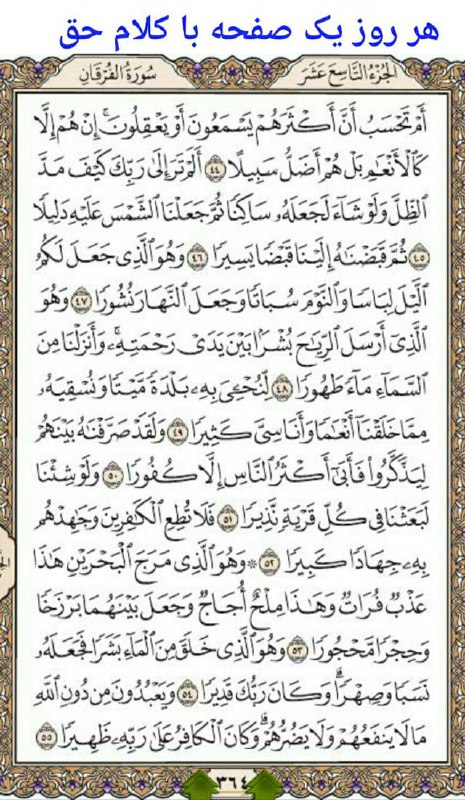 هر روز یک صفحه با کلام حق
الجزء التاسع عشر
سورة الفرقان
أَمْ تَحْسَبُ أَنَّ أَكْثَرَهُمْ يَسْمَعُونَ أَوْ يَعْقِلُونَ ۚ إِنْ هُمْ إِلَّا
كَالْأَنْعَامِ بَلْ هُمْ أَضَلُّ سَبِيلًا ٤٤ أَلَمْ تَرَ إِلَىٰ رَبِّكَ كَيْفَ مَدَّ
الظِّلَّ وَلَوْ شَاءَ لَجَعَلَهُ سَاكِنًا ثُمَّ جَعَلْنَا الشَّمْسَ عَلَيْهِ دَلِيلًا
٤٥ ثُمَّ قَبَضْنَاهُ إِلَيْنَا قَبْضًا يَسِيرًا ٤٦ وَهُوَ الَّذِي جَعَلَ لَكُمُ
اللَّيْلَ لِبَاسًا وَالنَّوْمَ سُبَاتًا وَجَعَلَ النَّهَارَ نُشُورًا ٤٧ وَهُوَ
الَّذِي أَرْسَلَ الرِّيَاحَ بُشْرًا بَيْنَ يَدَيْ رَحْمَتِهِ ۚ وَأَنْزَلْنَا مِنَ
السَّمَاءِ مَاءً طَهُورًا ٤٨ لِنُحْيِيَ بِهِ بَلْدَةً مَيْتًا وَنُسْقِيَهُ
مِمَّا خَلَقْنَا أَنْعَامًا وَأَنَاسِيَّ كَثِيرًا ٤٩ وَلَقَدْ صَرَّفْنَاهُ بَيْنَهُمْ
لِيَذَّكَّرُوا فَأَبَىٰ أَكْثَرُ النَّاسِ إِلَّا كُفُورًا ٥٠ وَلَوْ شِئْنَا
لَبَعَثْنَا فِي كُلِّ قَرْيَةٍ نَذِيرًا ٥١ فَلَا تُطِعِ الْكَافِرِينَ وَجَاهِدْهُمْ
بِهِ جِهَادًا كَبِيرًا ٥٢ ۞ وَهُوَ الَّذِي مَرَجَ الْبَحْرَيْنِ هَٰذَا
عَذْبٌ فُرَاتٌ وَهَٰذَا مِلْحٌ أُجَاجٌ وَجَعَلَ بَيْنَهُمَا بَرْزَخًا
وَحِجْرًا مَحْجُورًا ٥٣ وَهُوَ الَّذِي خَلَقَ مِنَ الْمَاءِ بَشَرًا فَجَعَلَهُ
نَسَبًا وَصِهْرًا ۗ وَكَانَ رَبُّكَ قَدِيرًا ٥٤ وَيَعْبُدُونَ مِنْ دُونِ اللَّهِ
مَا لَا يَنْفَعُهُمْ وَلَا يَضُرُّهُمْ ۗ وَكَانَ الْكَافِرُ عَلَىٰ رَبِّهِ ظَهِيرًا ٥٥
٣٦٤